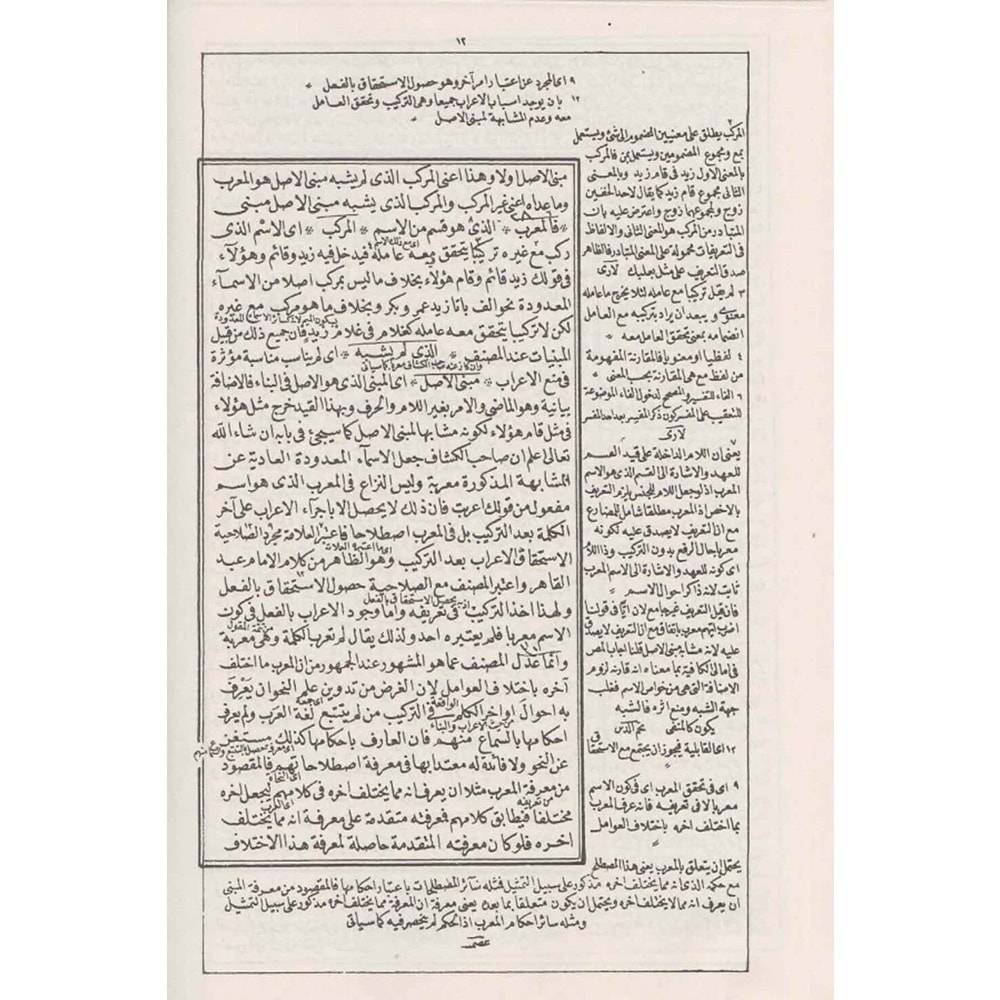 ١٢
٩ اى المجرد عن اعتبار امر آخر وهو حصول الاستحقاق بالفعل *
١٢ بان يوجد اسبابها الاعراب جميعا وهى التركيب وتحقق العامل
معه وعدم المشابهة لمبنى الاصل *
المركب يطلق على معنيين المضموم الى شئ ويستعمل
بمع ومجموع المضمومين ويستعمل بمن فالمركب
بالمعنى الاول زيد فى قام زيد وبالمعنى
الثانى مجموع قام زيد كما يقال لاحد الخفين
زوج ولمجموعهما زوج واعترض عليه بان
المتبادر من المركب هو المعنى الثانى والالفاظ
فى التعريفات محمولة على المعنى المتبادر فالظاهر
صدق التعريف على مثل بعلبك لارى
٣ لم يقل تركيبا مع عامله لئلا يخرج ما عامله
معنوى ويبعد ان يراد بتركيبه مع العامل
انضمامه بمعنى تحقق العامل معه *
٤ لفظيا او معنويا فالمقارنة المفهومة
من لفظ مع هى المقارنة بحسب المعنى *
٦ الفاء للتفسير والمصحح لدخول الفاء الموضوعة
للتعقيب على المفسر كون ذكر المفسر بعد المفسر
لارى
يعنى ان اللام الداخلة على قيد القسم
للعهد والاشارة الى القسم الذى هو الاسم
المعرب اذ لو جعل اللام للجنس يلزم التعريف
بالاخص اذ المعرب مطلقا شامل للمضارع
مع ان التعريف لا يصدق عليه لكونه
معربا حال الرفع بدون التركيب
اى كونه للعهد والاشارة الى الاسم المعرب
ثابت لانه ذاكر احوال الاسم *
فان قيل التعريف غير جامع لان ايا فى قولنا
اضرب ايهم معرب باتفاق مع ان التعريف لا يصدق
عليه لانه مشابه مبنى الاصل قلنا اجاب المص
فى امالى الكافية بما معناه انه قارنه لزوم
الاضافة التى هى من خواص الاسم فغلب
جهة الشبه ومنع اثره فالشبه
يكون كالمنتفى نجم الدين
١٢ اى القابلية فيجوز ان يجتمع مع الاستحقاق
٩ اى فى تحقق المعرب اى فى كون الاسم
معربا لا فى تعريفه فانه عرف المعرب
بما اختلف اخره باختلاف العوامل
مبنى الاصل اولا وهذا اعنى المركب الذى لم يشبه مبنى الاصل هو المعرب
وما عداه اعنى غير المركب والمركب الذى يشبه مبنى الاصل مبنى
* فالمعرب * الذى هو قسم من الاسم * المركب * اى الاسم الذى
اى مع ذلك الاسم
ركب مع غيره تركيبا يتحقق معه عامله فيدخل فيه زيد وقائم وهؤلاء
فى قولك زيد قائم وقام هؤلاء بخلاف ما ليس بمركب اصلا من الاسماء
المعدودة نحو الف با تا زيد عمر و بكر وبخلاف ما هو مركب مع غيره
لكن لا تركيبا يتحقق معه عامله كغلام فى غلام زيد فان جميع ذلك من قبيل
المبنيات عند المصنف * الذى لم يشبه * اى لم يناسب مناسبة مؤثرة
فى منع الاعراب * مبنى الاصل * اى المبنى الذى هو الاصل فى البناء فالاضافة
بيانية وهو الماضى والامر بغير اللام والحرف وبهذا القيد خرج مثل هؤلاء
فى مثل قام هؤلاء لكونه مشابها لمبنى الاصل كما سيجئ فى بابه ان شاء الله
تعالى اعلم ان صاحب الكشاف جعل الاسماء المعدودة العادية عن
المشابهة المذكورة معربة وليس النزاع فى المعرب الذى هو اسم
مفعول من قولك اعربت فان ذلك لا يحصل الا باجراء الاعراب على آخر
الكلمة بعد التركيب بل فى المعرب اصطلاحا فاعتبر العلامة مجرد الصلاحية
اى ما اعتبره العلامة
لاستحقاق الاعراب بعد التركيب وهو الظاهر من كلام الامام عبد
القاهر واعتبر المصنف مع الصلاحية حصول الاستحقاق بالفعل
ولهذا اخذ التركيب فى تعريفه واما وجود الاعراب بالفعل فى كون
الاسم معربا فلم يعتبره احد ولذلك يقال لم تعرب الكلمة وهى معربة
وانما عدل المصنف عما هو المشهور عند الجمهور من ان المعرب ما اختلف
آخره باختلاف العوامل لان الغرض من تدوين علم النحو ان يعرف
به احوال اواخر الكلم فى التركيب من لم يتتبع لغة العرب ولم يعرف
الواقعة
من حيث الاعراب والبناء
احكامها بالسماع منهم فان العارف باحكامها كذلك مستغن
عن النحو ولا فائدة له معتدا بها فى معرفة اصطلاحاتهم فالمقصود
اى النحاة
من معرفة المعرب مثلا ان يعرف انه مما يختلف آخره فى كلامهم ليجعل اخره
مختلفا فيطابق كلامهم فمعرفته متقدمة على معرفة انه مما يختلف
اخره فلو كان معرفته المتقدمة حاصلة لمعرفة هذا الاختلاف
يحتمل ان يتعلق بالمعرب يعنى هذا المصطلح
مع حكمه الذى انه مما يختلف اخره مذكور على سبيل التمثيل فمثله سائر المصطلحات باعتبار احكامها فالمقصود من معرفة المبنى
ان يعرف انه مما لا يختلف اخره ويحتمل ان يكون متعلقا بما بعده يعنى معرفة ان المعرفة مما يختلف اخره مذكور على سبيل التمثيل
ومثله سائر احكام المعرب اذ الحكم لم ينحصر فيه كما سياتى
عصمت